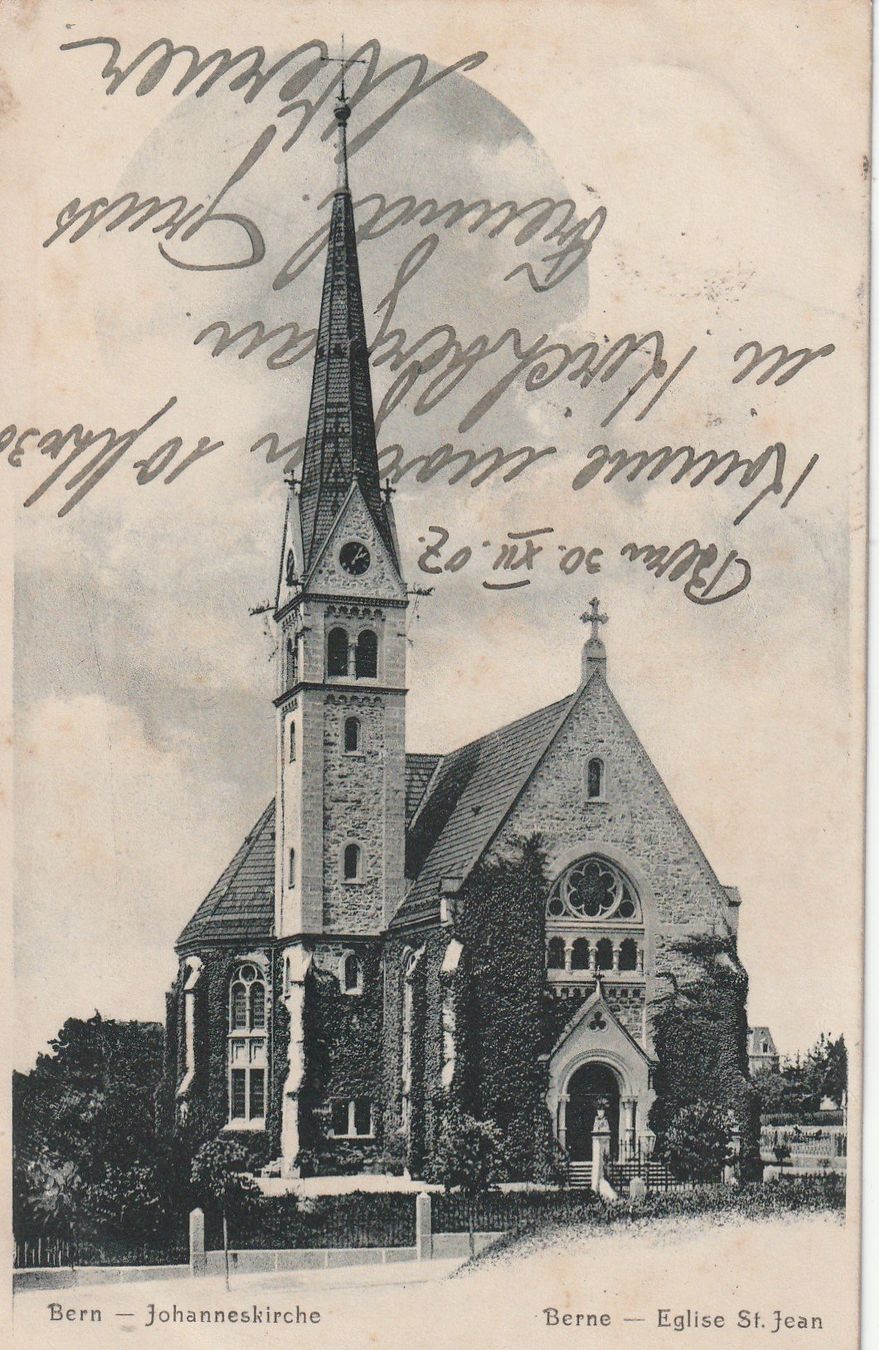 Bern 30. XII. 07.
Komme morgen 10 Uhr 30
in Kirchberg an
Freundl. Gruss
Werner
Bern — Johanneskirche
Berne — Eglise St. Jean